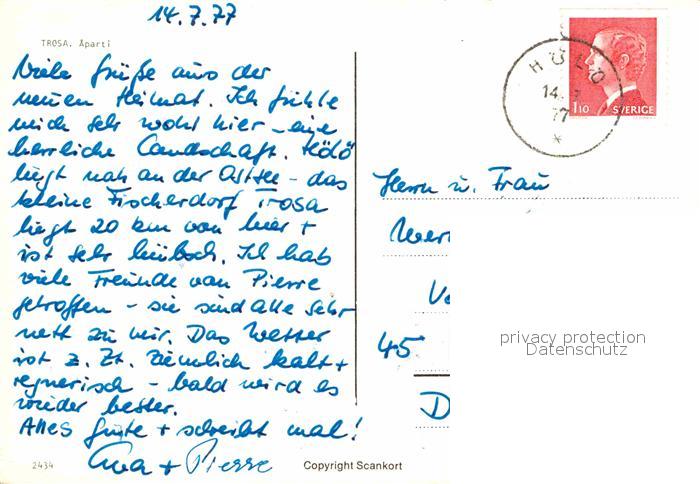 14.7.77
TROSA. Åparti
Viele Grüße aus der
neuen Heimat. Ich fühle
mich sehr wohl hier – eine
herrliche Landschaft. Hölö
liegt nah an der Ostsee – das
kleine Fischerdorf Trosa
liegt 20 km von hier +
ist sehr hübsch. Ich hab
viele Freunde von Pierre
getroffen – sie sind alle sehr
nett zu mir. Das Wetter
ist z. Zt. ziemlich kalt +
regnerisch – bald wird es
wieder besser.
Alles Gute + schreibt mal!
+ Pierre
2434
Copyright Scankort
HÖLÖ
14. 7
77
*
1.10 SVERIGE
Herrn u. Frau
Wer
45
D
privacy protection
Datenschutz